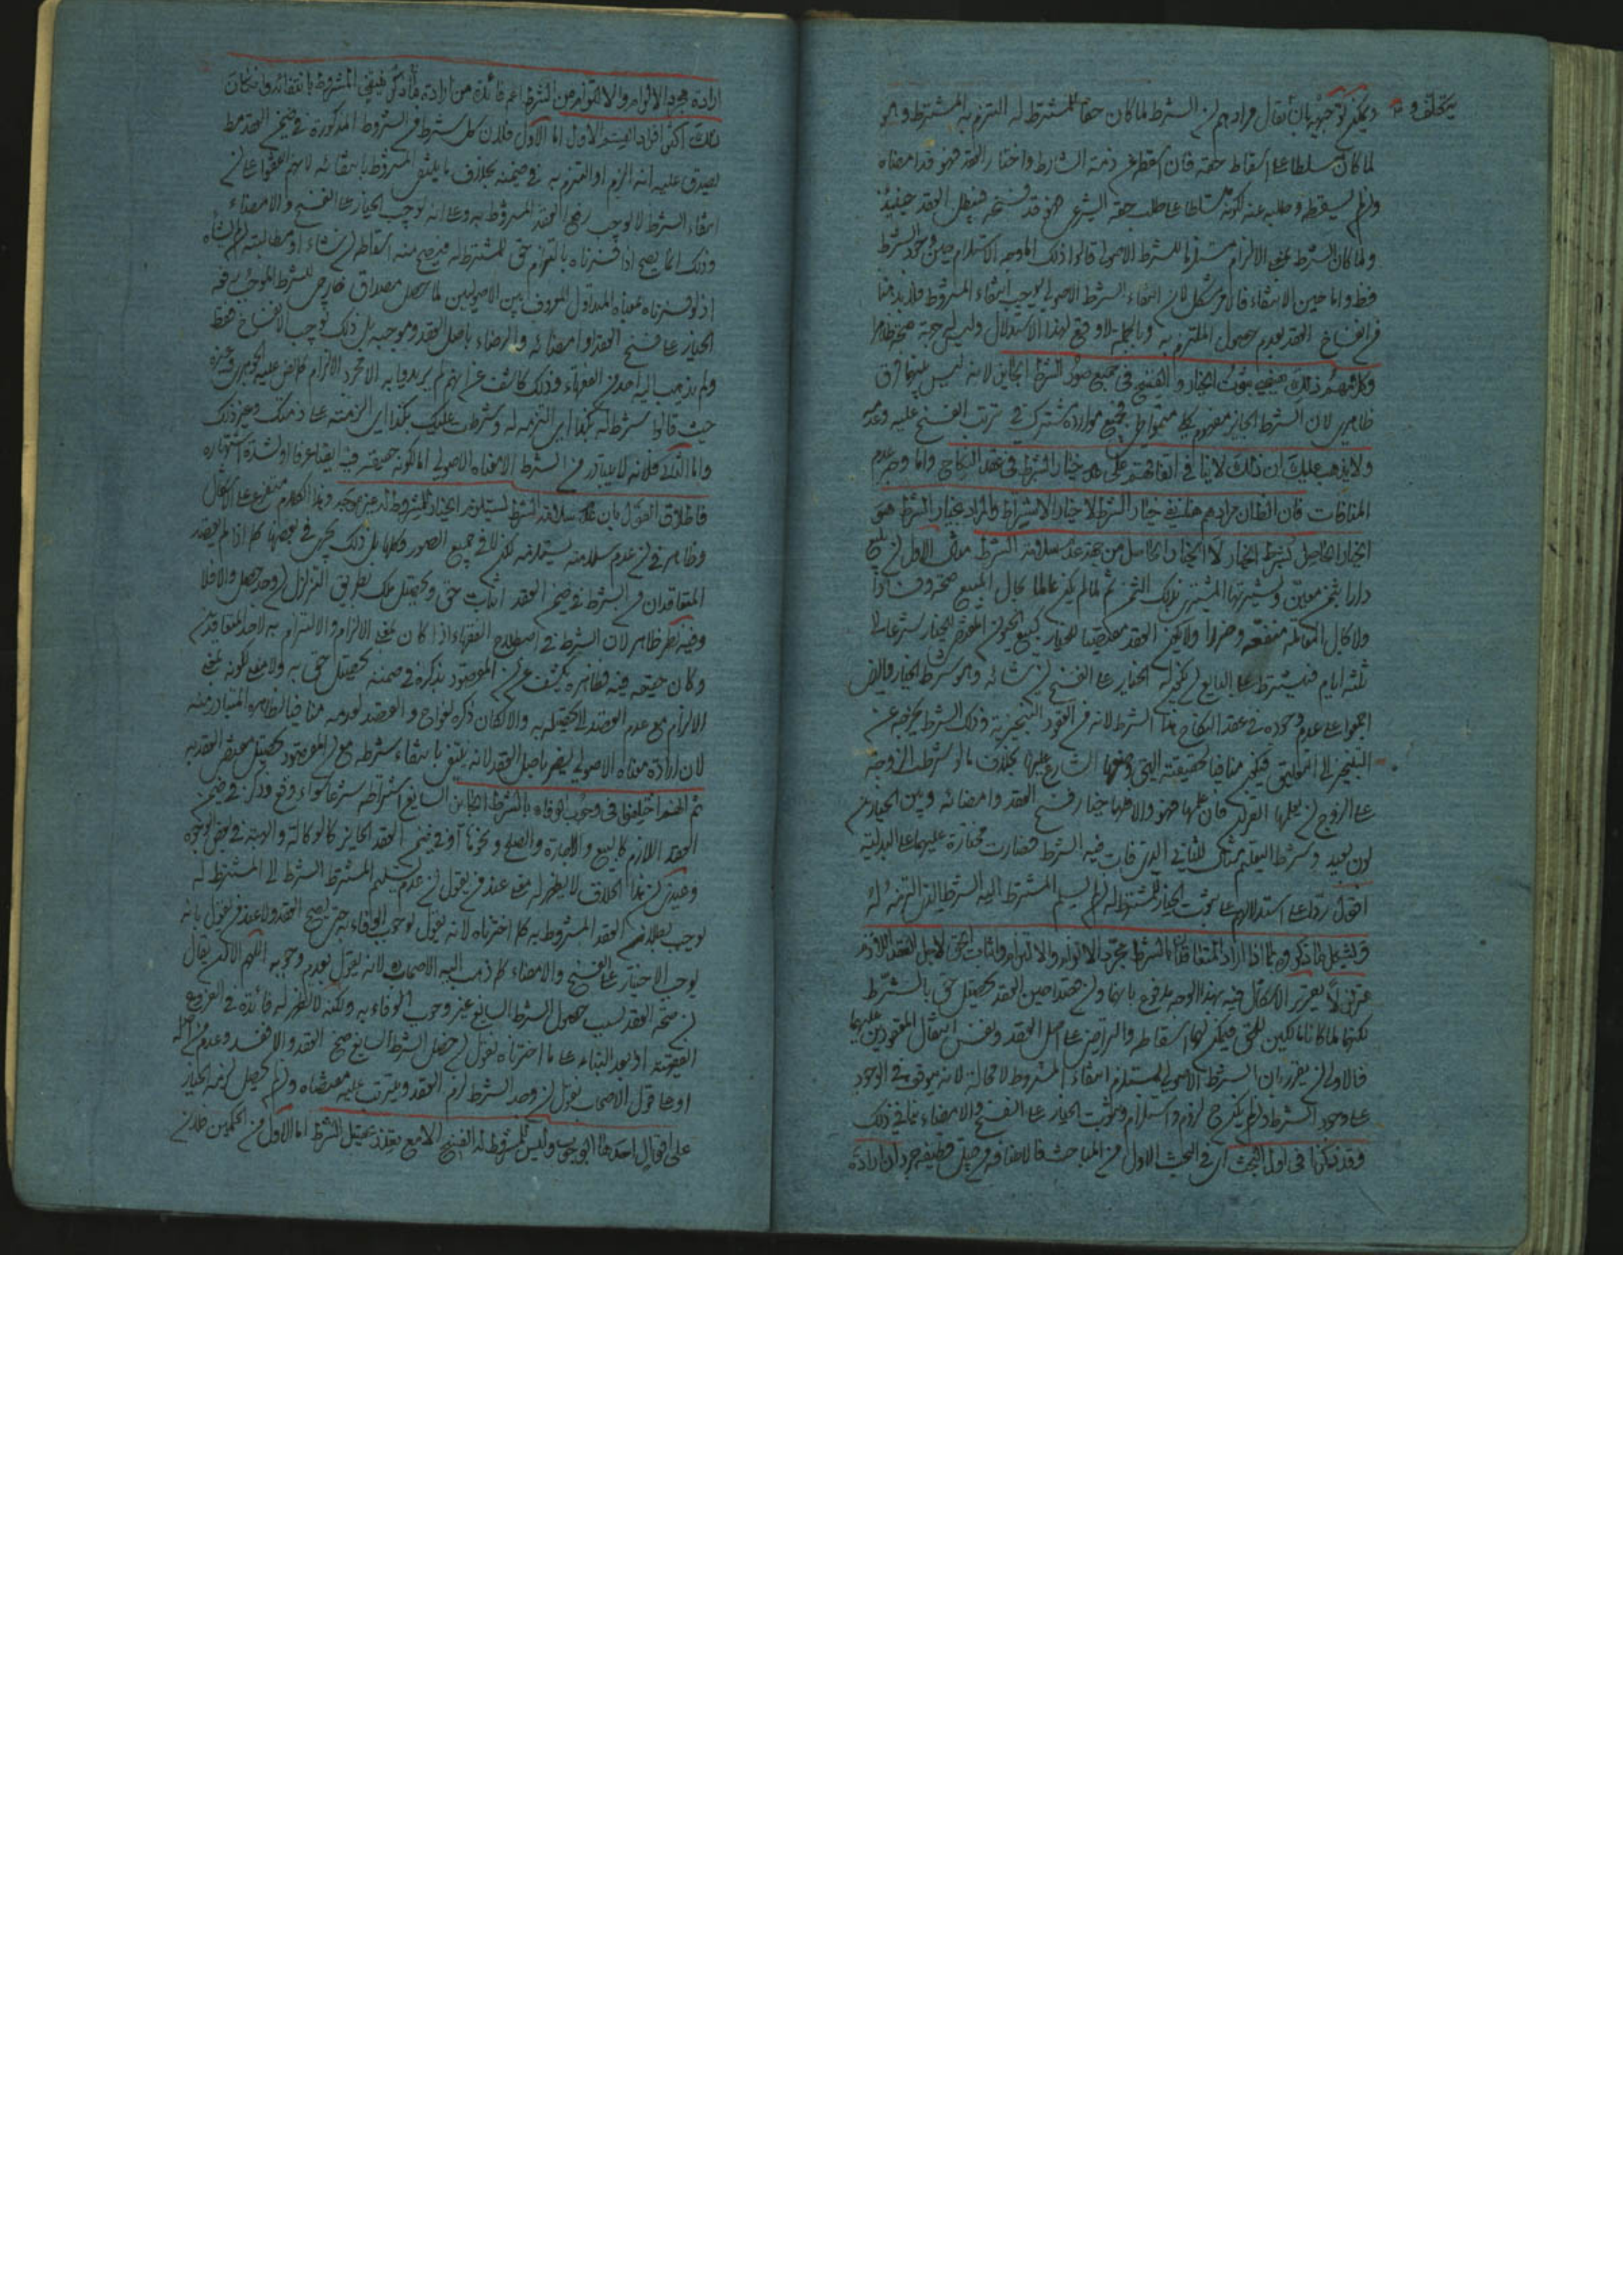 ويمكن توجيهه بان يقال مرادهم ان الشرط لما كان حقا للمشترط له التزم به المشترط وهو
لما كان سلطانا على اسقاط حقه فان اسقط عن ذمة الشارط واختار العقد فهو قد امضاه
وان لم يسقطه وطلبه عنه لكونه سلطانا على طلب حقه الشرعي فهو قد فسخه فيبطل العقد حينئذ
ولما كان الشرط بمعنى الالزام مستلزما للشرط الاصولي قالوا ذلك اما وجه الاستلزام حين وجود الشرط
فظ واما حين الانتفاء فالامر مشكل لان انتفاء الشرط الاصولي يوجب انتفاء المشروط فلا بد هنا
من انفساخ العقد بعدم حصول الملتزم به وبالجملة لا وقع لهذا الاستدلال وليس حجة صحيحة ظاهرا
وكلامهم ذلك يقتضي ثبوت الخيار والفسخ في جميع صور الشرط الجايز لانه ليس بينها فرق
ظاهر لان الشرط الجايز مفهوم كلي متواطي وجميع موارده مشترك في ترتب الفسخ عليه وعدمه
ولا يذهب عليك ان ذلك لا ينافي اتفاقهم على عدم خيار الشرط في عقد النكاح واما وجه عدم
المنافات فان الظان مرادهم هناك نفي خيار الشرط لا خيار الاشتراط والمراد بخيار الشرط هو
الخيار الحاصل بشرط الخيار لا الخيار الحاصل من جهة عدم سلامة الشرط مثال الاول ان يبيع
دارا بثمن معين ويشتريها المشتري بذلك الثمن ثم لما لم يكن عالما بحال المبيع صحة وفسادا
ولا بحال المعاملة منفعة وضررا ولا يكون العقد مقتضيا للخيار كبيع الحيوان المقتضي للخيار شرعا الى
ثلثة ايام فيشترط على البايع ان يكون له الخيار على الفسخ ان شاء وهو شرط الخيار والفرض
اجمعوا على عدم وجوده في عقد النكاح هذا الشرط لانه من العقود التنجيزية وذلك الشرط يخرجه عن
التنجيز الى التعليق فيكون منافيا لحقيقته التي وضعها الشارع عليها بخلاف ما لو شرطت الزوجة
على الزوج ان يعلمها القران فان علمها فهو والا فلها خيار فسخ العقد وامضائه وبين الخيارين
لون بعيد وشرط التعليم مثال للثاني الذي فات فيه الشرط فصارت مختارة عليهما على البدلية
اقول ردا على استدلالهم على ثبوت الخيار للمشترط له ان لم يسلم المشترط اليه الشرط الذي التزمه له
ويشكل ما ذكروه بما اذا اراد المتعاقدان بالشرط مجرد الالزام والالتزام واثبات الحق لاجل العقد اللازم
لكنهما لما كانا مالكين للحق فيمكن لهما اسقاطه والتراضي على اصل العقد ونفس انتقال المعقودين عليهما
فالاولى ان يقرر بان الشرط الاصولي يستلزم انتفاء المشروط لا محالة لانه موقوف في الوجود
على وجود الشرط وان لم يكن لزوم واستلزام وثبوت الخيار على الفسخ والامضاء ينافي ذلك
وقد ذكرنا في اول البحث اي في البحث الاول من المباحث
ارادة مجرد الالزام والالتزام من الشرط اعم فائدة من ارادة ما ذكر فينفي المشروط بانتفائه وان كان
ذلك اكثر افراد القسم الاول اما الاول فلان كل شرط من الشروط المذكورة في ضمن العقد
يصدق عليه انه الزم او التزم به في ضمنه بخلاف ما ينتفي المشروط بانتفائه لانهم اتفقوا على ان
انتفاء الشرط لا يوجب رفع العقد المشروط به وعلى انه يوجب الخيار على الفسخ والامضاء
وذلك انما يصح اذا فسرناه بالتزام حق للمشترط له فيصح منه اسقاطه ان شاء او مطالبته ان شاء
اذ لو فسرناه بمعناه المتداول المعروف بين الاصوليين لما يحصل مصداق
الخيار على فسخ العقد وامضائه والرضاء باصل العقد وموجبه بل ذلك يوجب الانفساخ فقط
ولم يذهب اليه احد من الفقهاء وذلك كاشف عن انهم لم يريدوا به الا مجرد الالزام كما نص عليه الجوهري وغيره
حيث قالوا شرط له بكذا اي التزمه له وشرطت عليك بكذا اي الزمته على ذمتك وغير ذلك
واما الثاني فلانه لا يتبادر من الشرط الا معناه الاصولي اما لكونه حقيقة فيه ايضا عرفا او لشدة اشتهاره
فاطلاق القول بان عدم سلامة الشرط يستلزم الخيار للمشروط له غير موجه وهذا الكلام متفرع على الاشكال
وظاهر في ان عدم سلامته يستلزمه لكن لا في جميع الصور وكلها بل ذلك يجري في بعضها كما اذا لم يقصد
المتعاقدان من الشرط في ضمن العقد اثبات حق وتحصيل ملك بطريق التزلزل ان وجد حصل والا فلا
وفيه نظر ظاهر لان الشرط في اصطلاح الفقهاء اذا كان بمعنى الالزام والالتزام به لاحد المتعاقدين
وكان حقيقة فيه فظاهره يكشف عن ان المقصود بذكره في ضمنه تحصيل حق به ولا معنى لكونه بمعنى
الالزام مع عدم القصد الى تحصيله به والا لكان ذكره
لان ارادة معناه الاصولي يضر باصل العقد لانه ينتفي بانتفاء شرطه مع ان المقصود تحصيل مقتضى العقد به
ثم انهم اختلفوا في وجوب الوفاء بالشرط الجايز السايغ اشتراطه شرعا سواء وقع وذكر في ضمن
العقد اللازم كالبيع والاجارة والصلح ونحوها او في ضمن العقد الجايز كالوكالة والهبة في بعض الوجوه
وعندي ان هذا الخلاف لا يظهر له معنى عند من يقول ان عدم تسليم المشترط الشرط الى المشترط له
يوجب بطلان العقد المشروط به كما اخترناه لانه يقول بوجوب الوفاء به حتى يصح العقد ولا عند من يقول بانه
يوجب الاختيار على الفسخ والامضاء كما ذهب اليه الاصحاب لانه يقول بعدم وجوبه اللهم الا ان يقال
ان صحة العقد بسبب حصول الشرط السايغ غير وجوب الوفاء به ولكنه لا يظهر له فائدة في الفروع
الفقهية اذ بعد البناء على ما اخترناه نقول ان حصل الشرط السايغ صح العقد والا فسد
او على قول الاصحاب نقول ان وجد الشرط لزم العقد ويترتب عليه مقتضاه وان لم يحصل
على اقوال احدها الوجوب وليس للمشروط له الفسخ الا مع تعذر تحصيل الشرط اما الاول فمن